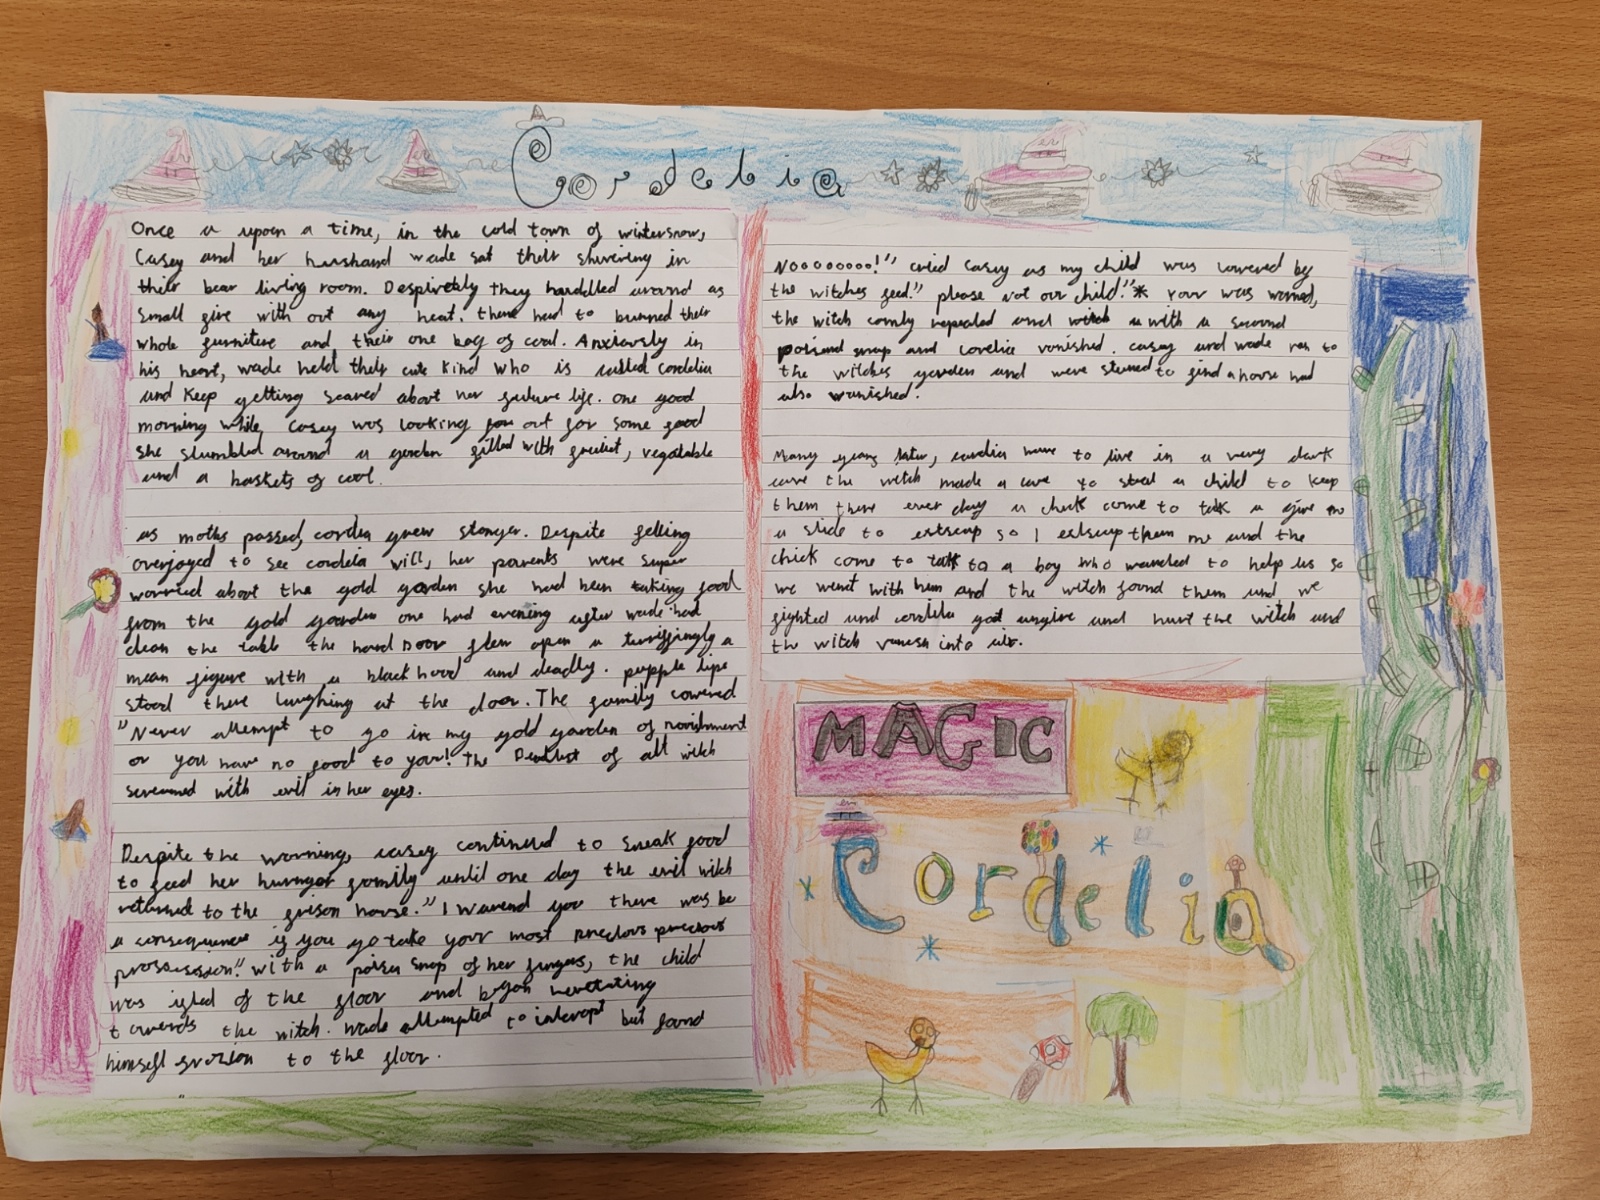 Cordelia
Once a upoen a time, in the cold town of wintersnow,
Casey and her hurshand wade sat their shivering in
their bear living room. Despiretly they handdled around as
small give with out any heat. there had to bunned their
whole furnitire and their one bag of coal. Anxiously in
his heart, wade held their cute kind who is called cordelia
and keep getting scared about her future life. one good
morning while, Casey was looking out for some food
she slumbled around a garden filled with fruiiet, vegatable
and a baskets of cool.
as moths passed, cordlia grew stonger. Despite felling
overjoyed to see cordelia will, her parents were super
worried about the gold garden she had been taking food
from the gold garden one had evening after wade had
clean the table the hard Door flew open a terriffingly a
mean figure with a black hood and deadly. pupple lips
stood there laughing at the door. The family cowered
"Never attempt to go in my gold garden of norishment
or you have no food to your! The Deadlist of all witch
screamed with evil in her eyes.
Despite the worning, casey continued to sneak food
to feed her hurnger family until one day the evil witch
returned to the frison house." I warend you there was be
a consequence if you go take your most precious
prossession!" with a poisen snap of her fingers, the child
was ifted of the floor and began
towerds the witch. wade attempted to interupt but found
himself frozion to the floor.
Noooooooo!" cried casey as my child was covered by
the witches feed." please not our child."* Your was warned,
the witch camly repealed and with a second
poisend snap and covelia vanished. casey and wade ran to
the witches garden and were stuned to find a house had
also wanished.
Many years later, cordlia have to live in a very dark
cave the witch made a cave to steal a child to keep
them there ever day a chick come to talk a give me
a slide to extseup so I extseup them me and the
chick come to talk to a boy who wanded to help us so
we went with him and the witch found them and we
fighted and cordelia got angire and hurt the witch and
the witch vanesh into air.
MAGIC
Cordelia